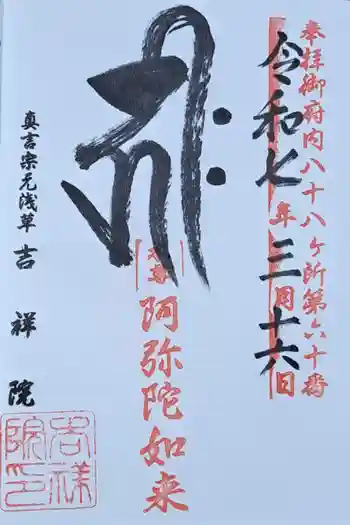 奉拝御府内八十八ケ所第六十番
令和七年三月十六日
キリーク
本尊
阿弥陀如来
真言宗元浅草
吉祥院
吉祥院印